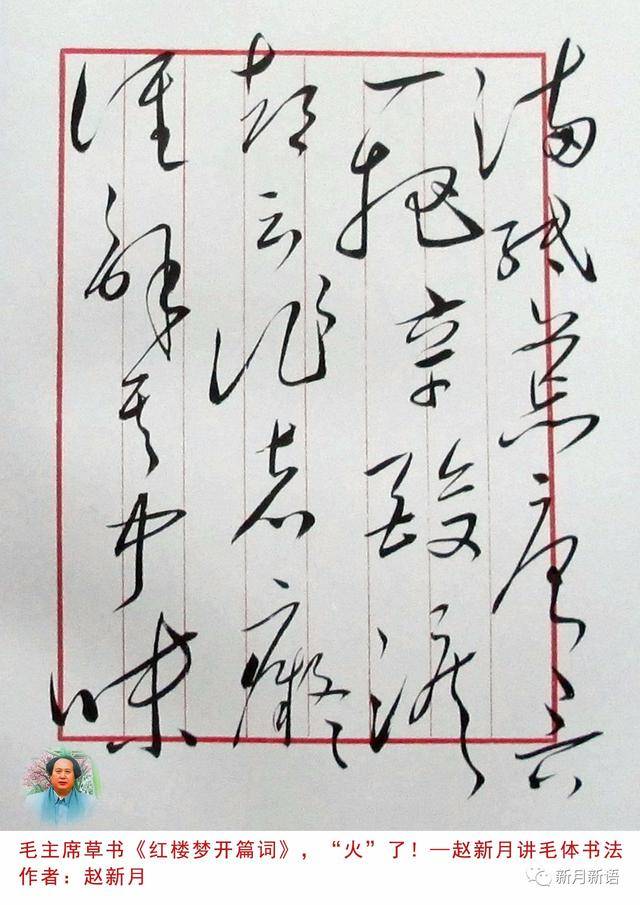 滿紙荒唐言
一把辛酸淚
都云作者癡
誰解其中味
毛主席草书《红楼梦开篇词》，“火”了！—赵新月讲毛体书法
作者：赵新月
新月新语